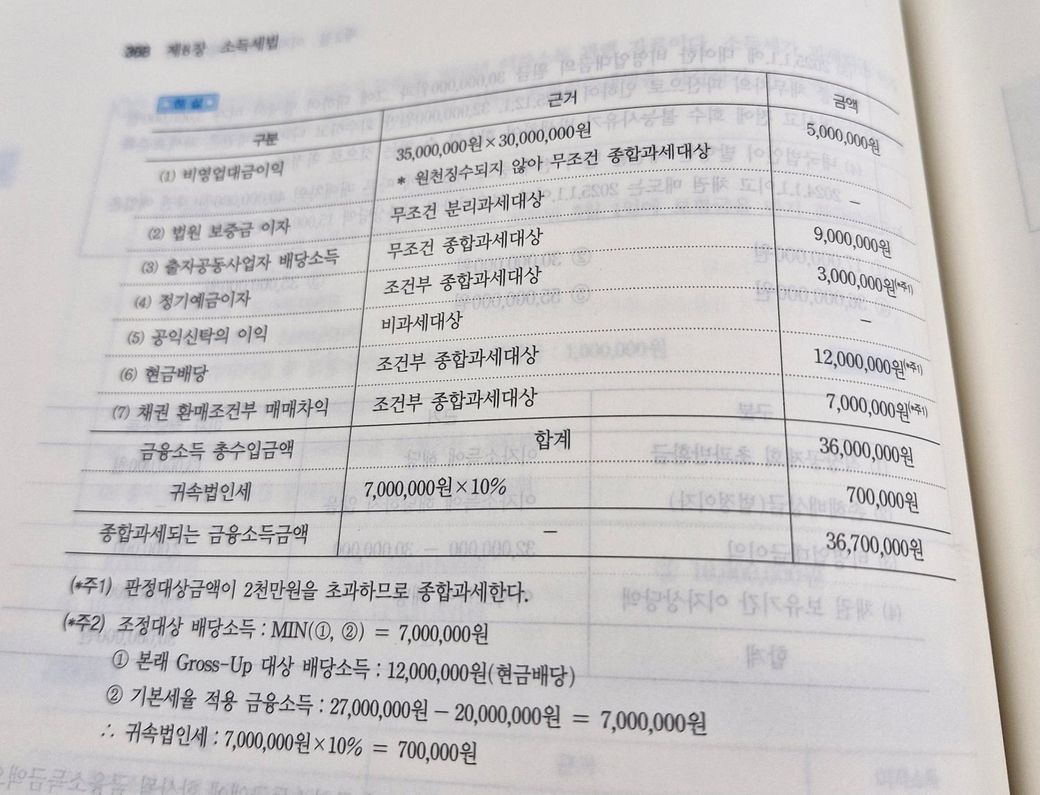 368 제6장 소득세법
해설
구분 근거 금액
(1) 비영업대금이익 35,000,000원×30,000,000원 5,000,000원
* 원천징수되지 않아 무조건 종합과세대상
(2) 법원 보증금 이자 무조건 분리과세대상 –
(3) 출자공동사업자 배당소득 무조건 종합과세대상 9,000,000원
(4) 정기예금이자 조건부 종합과세대상 3,000,000원(*주1)
(5) 공익신탁의 이익 비과세대상 –
(6) 현금배당 조건부 종합과세대상 12,000,000원(*주1)
(7) 채권 환매조건부 매매차익 조건부 종합과세대상 7,000,000원(*주1)
금융소득 총수입금액 합계 36,000,000원
귀속법인세 7,000,000원×10% 700,000원
종합과세되는 금융소득금액 – 36,700,000원
(*주1) 판정대상금액이 2천만원을 초과하므로 종합과세한다.
(*주2) 조정대상 배당소득 : MIN(①, ②) = 7,000,000원
① 본래 Gross-Up 대상 배당소득 : 12,000,000원(현금배당)
② 기본세율 적용 금융소득 : 27,000,000원 – 20,000,000원 = 7,000,000원
∴ 귀속법인세 : 7,000,000원×10% = 700,000원